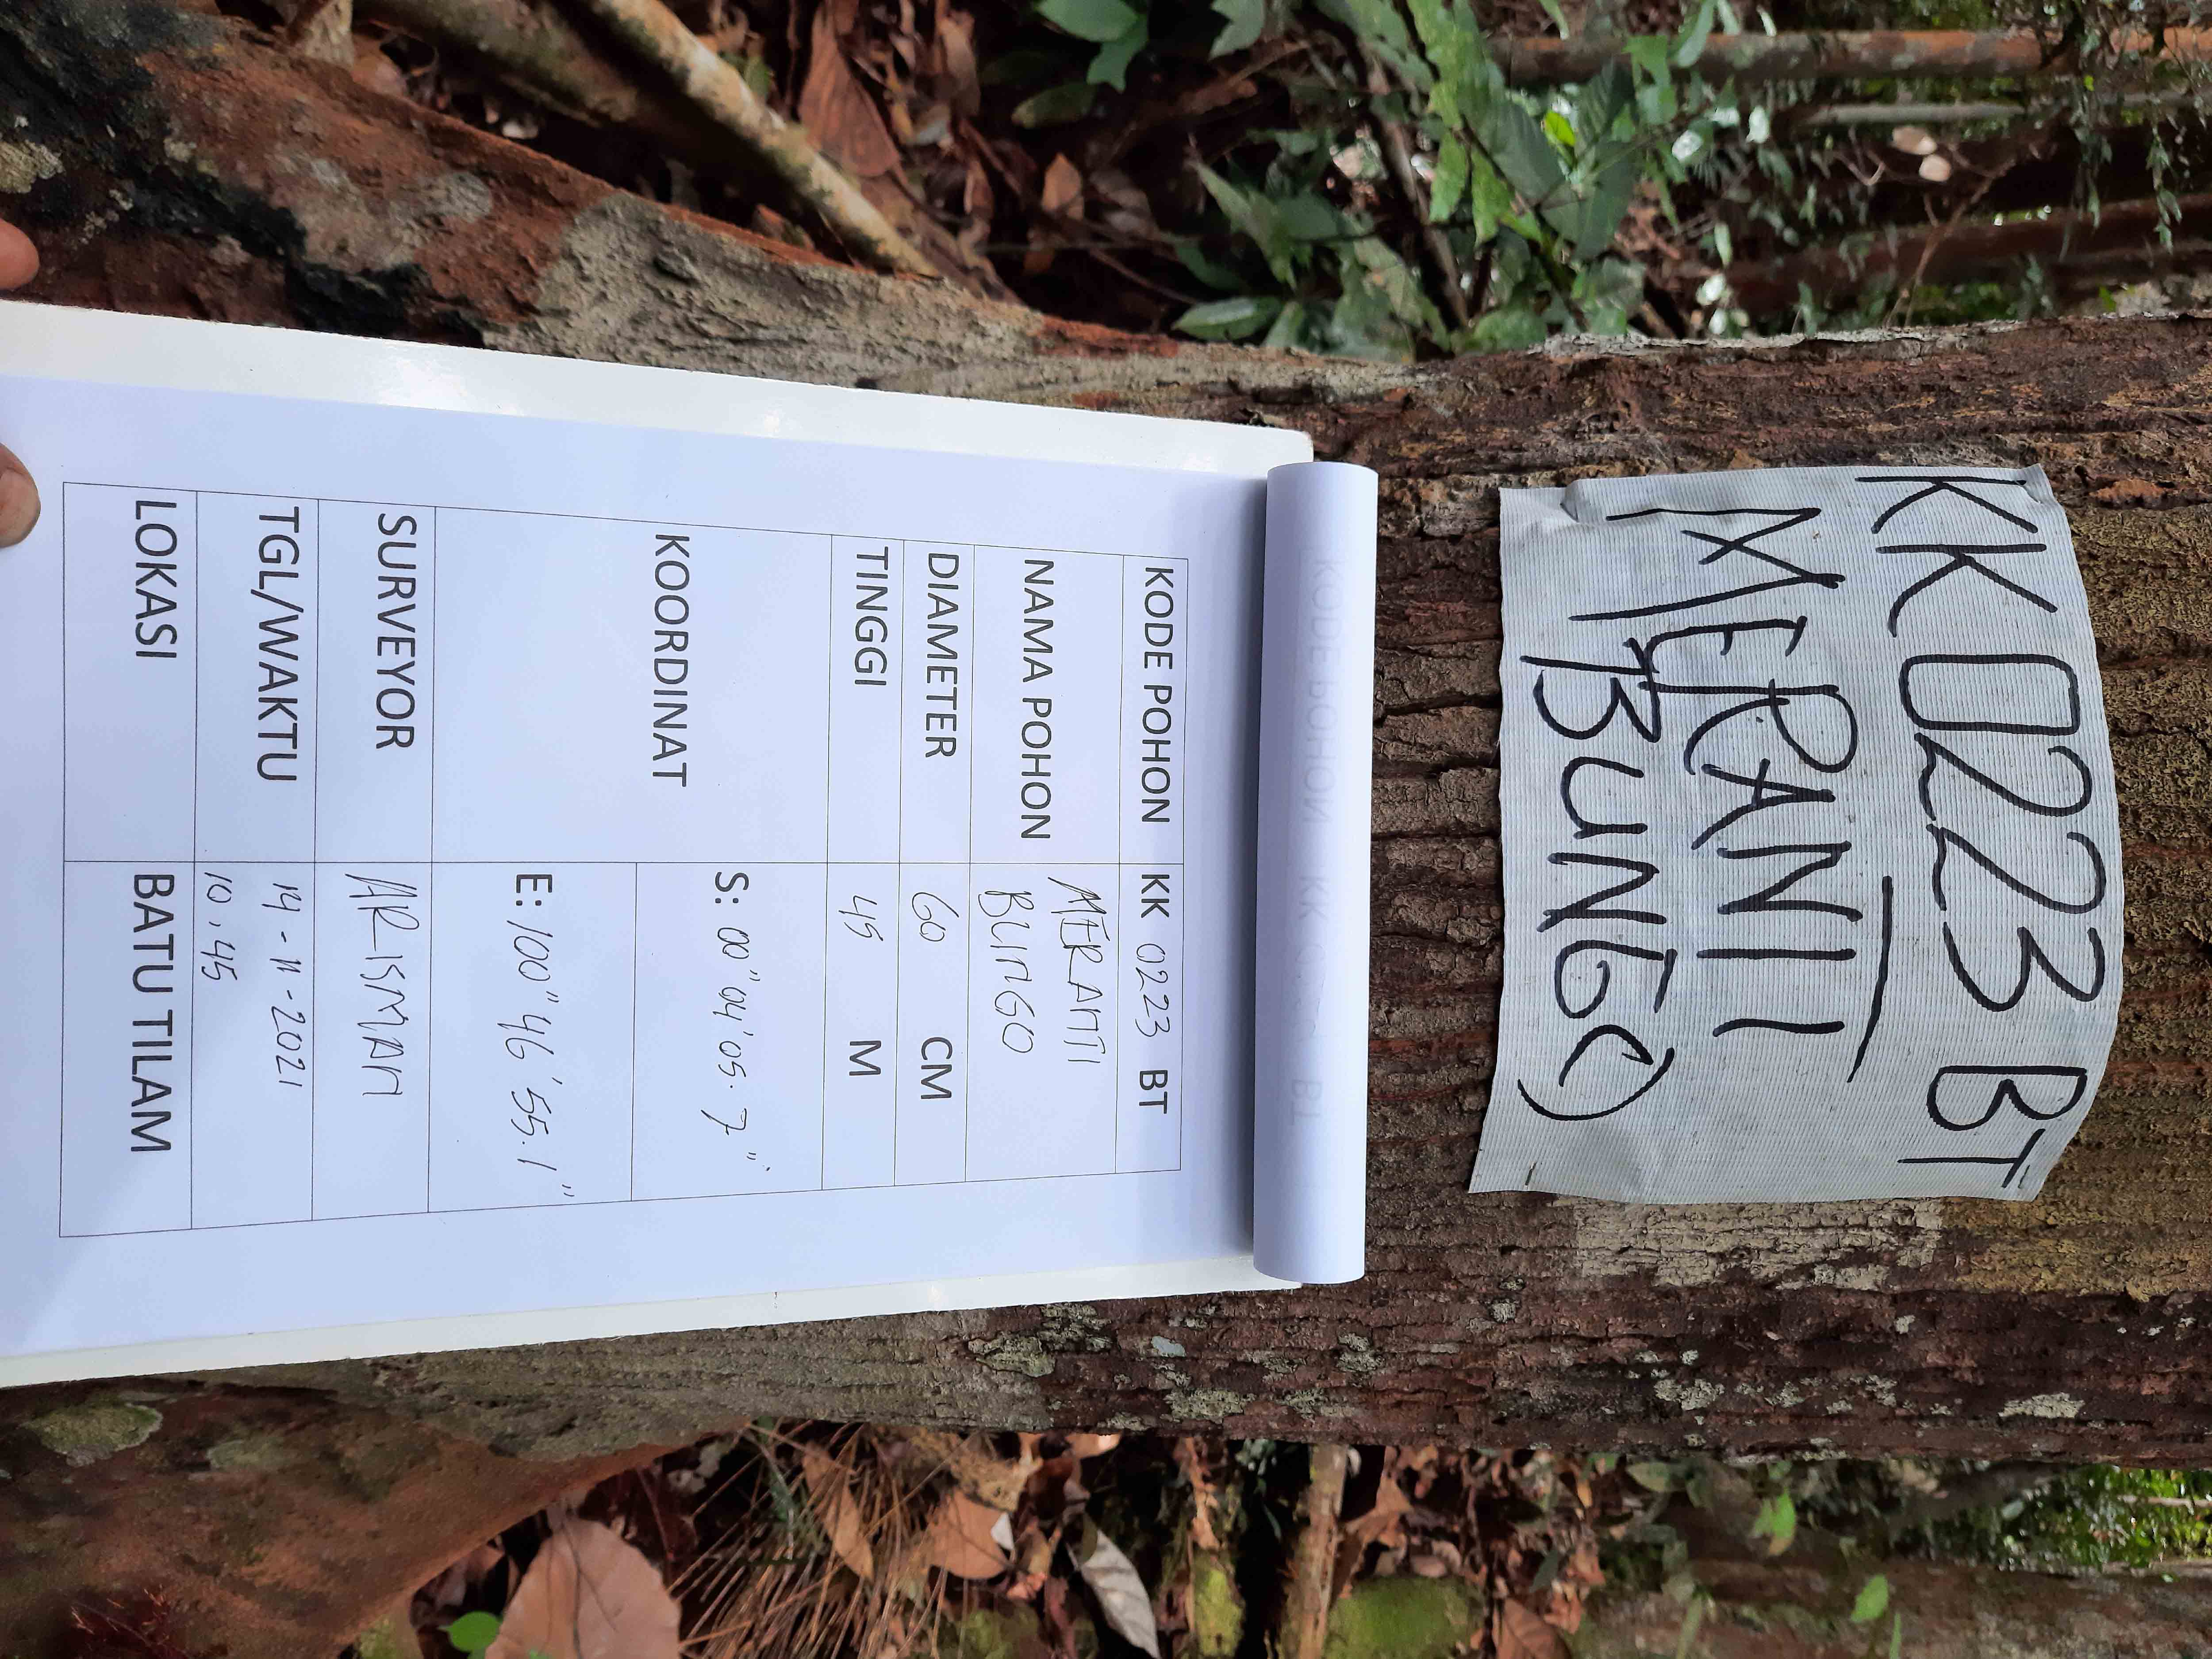 KK0223 BT
(MERANTI
BUNGO)
KODE POHON KK 0223 BT
NAMA POHON MERANTI
BUNGO
DIAMETER 60 CM
TINGGI 45 M
KOORDINAT S: 00" 04' 05.7"
E: 100" 46' 55.1"
SURVEYOR ARISMAN
TGL/WAKTU 14-11-2021
10.45
LOKASI BATU TILAM